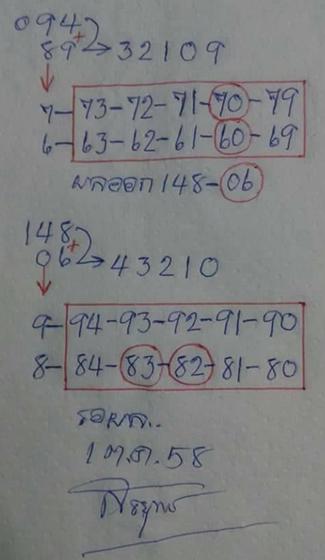 094
89 + → 32109
7- 73-72-71-70-79
6- 63-62-61-60-69
ผลออก 148-06
148
06 + → 43210
9- 94-93-92-91-90
8- 84-83-82-81-80
รอผล..
1 ต.ค. 58